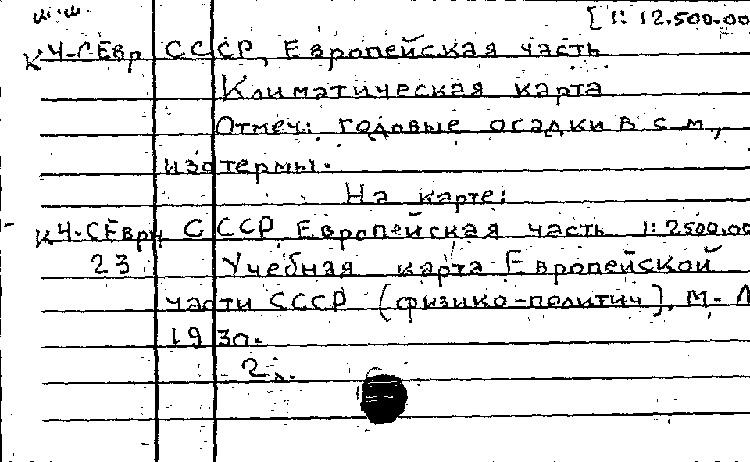 [1:12.500.00
К Ч-СЕвр СССР, Европейская часть
Климатическая карта
Отмеч: годовые осадки в см,
изотермы.
На карте:
К Ч-СЕвр СССР Европейская часть 1:2500.00
23 Учебная карта Европейской
части СССР (физико-политич), М.-Л
1930.
2 л.